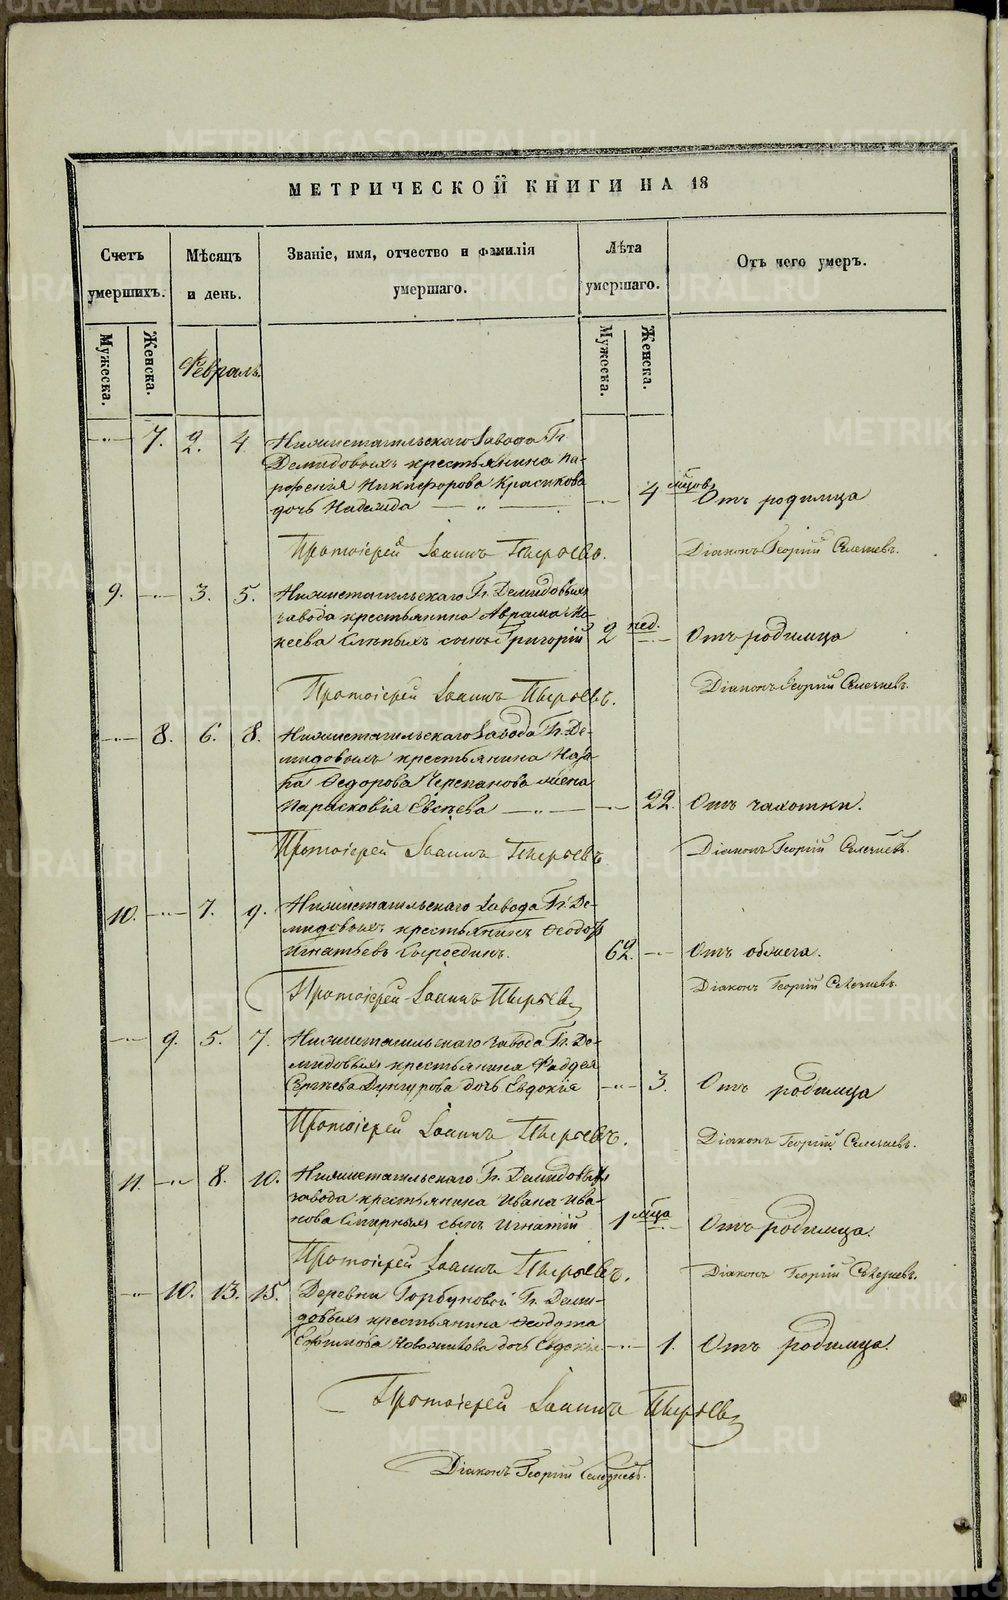 МЕТРИЧЕСКОЙ КНИГИ НА 18
Счетъ умершихъ.
Мѣсяцъ и день.
Званіе, имя, отчество и фамилія умершаго.
Лѣта умершаго.
Отъ чего умеръ.
Мужеска.
Женска.
Февраль.
Мужеска.
Женска.
7. 2. 4. Нижнетагильскаго завода Гг.
Демидовыхъ крестьянина Па-
рфенія Никифорова Красикова 4 мѣсяцовъ
дочь Надежда Отъ родимца
Протоіерей Іоаннъ Діаконъ Георгій Селезневъ.
9. 3. 5. Нижнетагильскаго Гг. Демидовыхъ
завода крестьянина Аврама Мо-
кеева Слѣпыхъ сынъ Григорій 2 нед. Отъ родимца
Протоіерей Іоаннъ Діаконъ Георгій Селезневъ.
8. 6. 8. Нижнетагильскаго завода Гг. Де-
мидовыхъ крестьянина Наза-
ра Федорова Черепанова жена
Парасковія Евсѣева 22. Отъ чахотки.
Протоіерей Іоаннъ Діаконъ Георгій Селезневъ.
10. 7. 9. Нижнетагильскаго завода Гг. Де-
мидовыхъ крестьянинъ Феодоръ
Игнатьевъ Сыроединъ. 62. Отъ
Протоіерей Іоаннъ Діаконъ Георгій Селезневъ.
9. 5. 7. Нижнетагильскаго завода Гг. Де-
мидовыхъ крестьянина Фаддея
Сергѣева дочь Евдокія 3. Отъ родимца
Протоіерей Іоаннъ Діаконъ Георгій Селезневъ.
11. 8. 10. Нижнетагильскаго Гг. Демидовыхъ
завода крестьянина Ивана Ива-
нова Смирныхъ сынъ Игнатій 1 мѣсяца Отъ родимца.
Протоіерей Іоаннъ Діаконъ Георгій Селезневъ.
10. 13. 15. Деревни Горбуновой Гг. Деми-
довыхъ крестьянина Феодота
Ефимова Новожилова дочь Евдокія 1. Отъ родимца.
Протоіерей Іоаннъ
Діаконъ Георгій Селезневъ.
METRIKI.GASO-URAL.RU